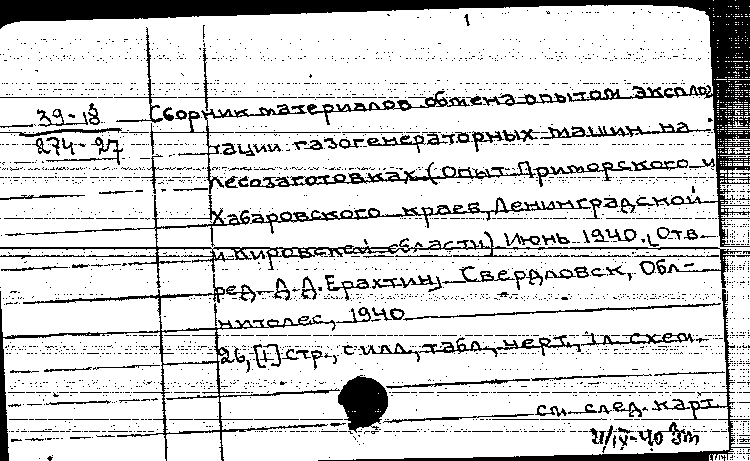 1
39-18
274-27
Сборник материалов обмена опытом эксплоа
тации газогенераторных машин на
лесозаготовках. (Опыт Приморского и
Хабаровского краев, Ленинградской
и Кировской области). Июнь 1940. [Отв.
ред. Д.Д. Ерахтин]. Свердловск, Обл-
нитолес, 1940
26, [1] стр., с илл., табл., черт., 1 л. схем.
см. след. карт.
4/IX-40 Зт